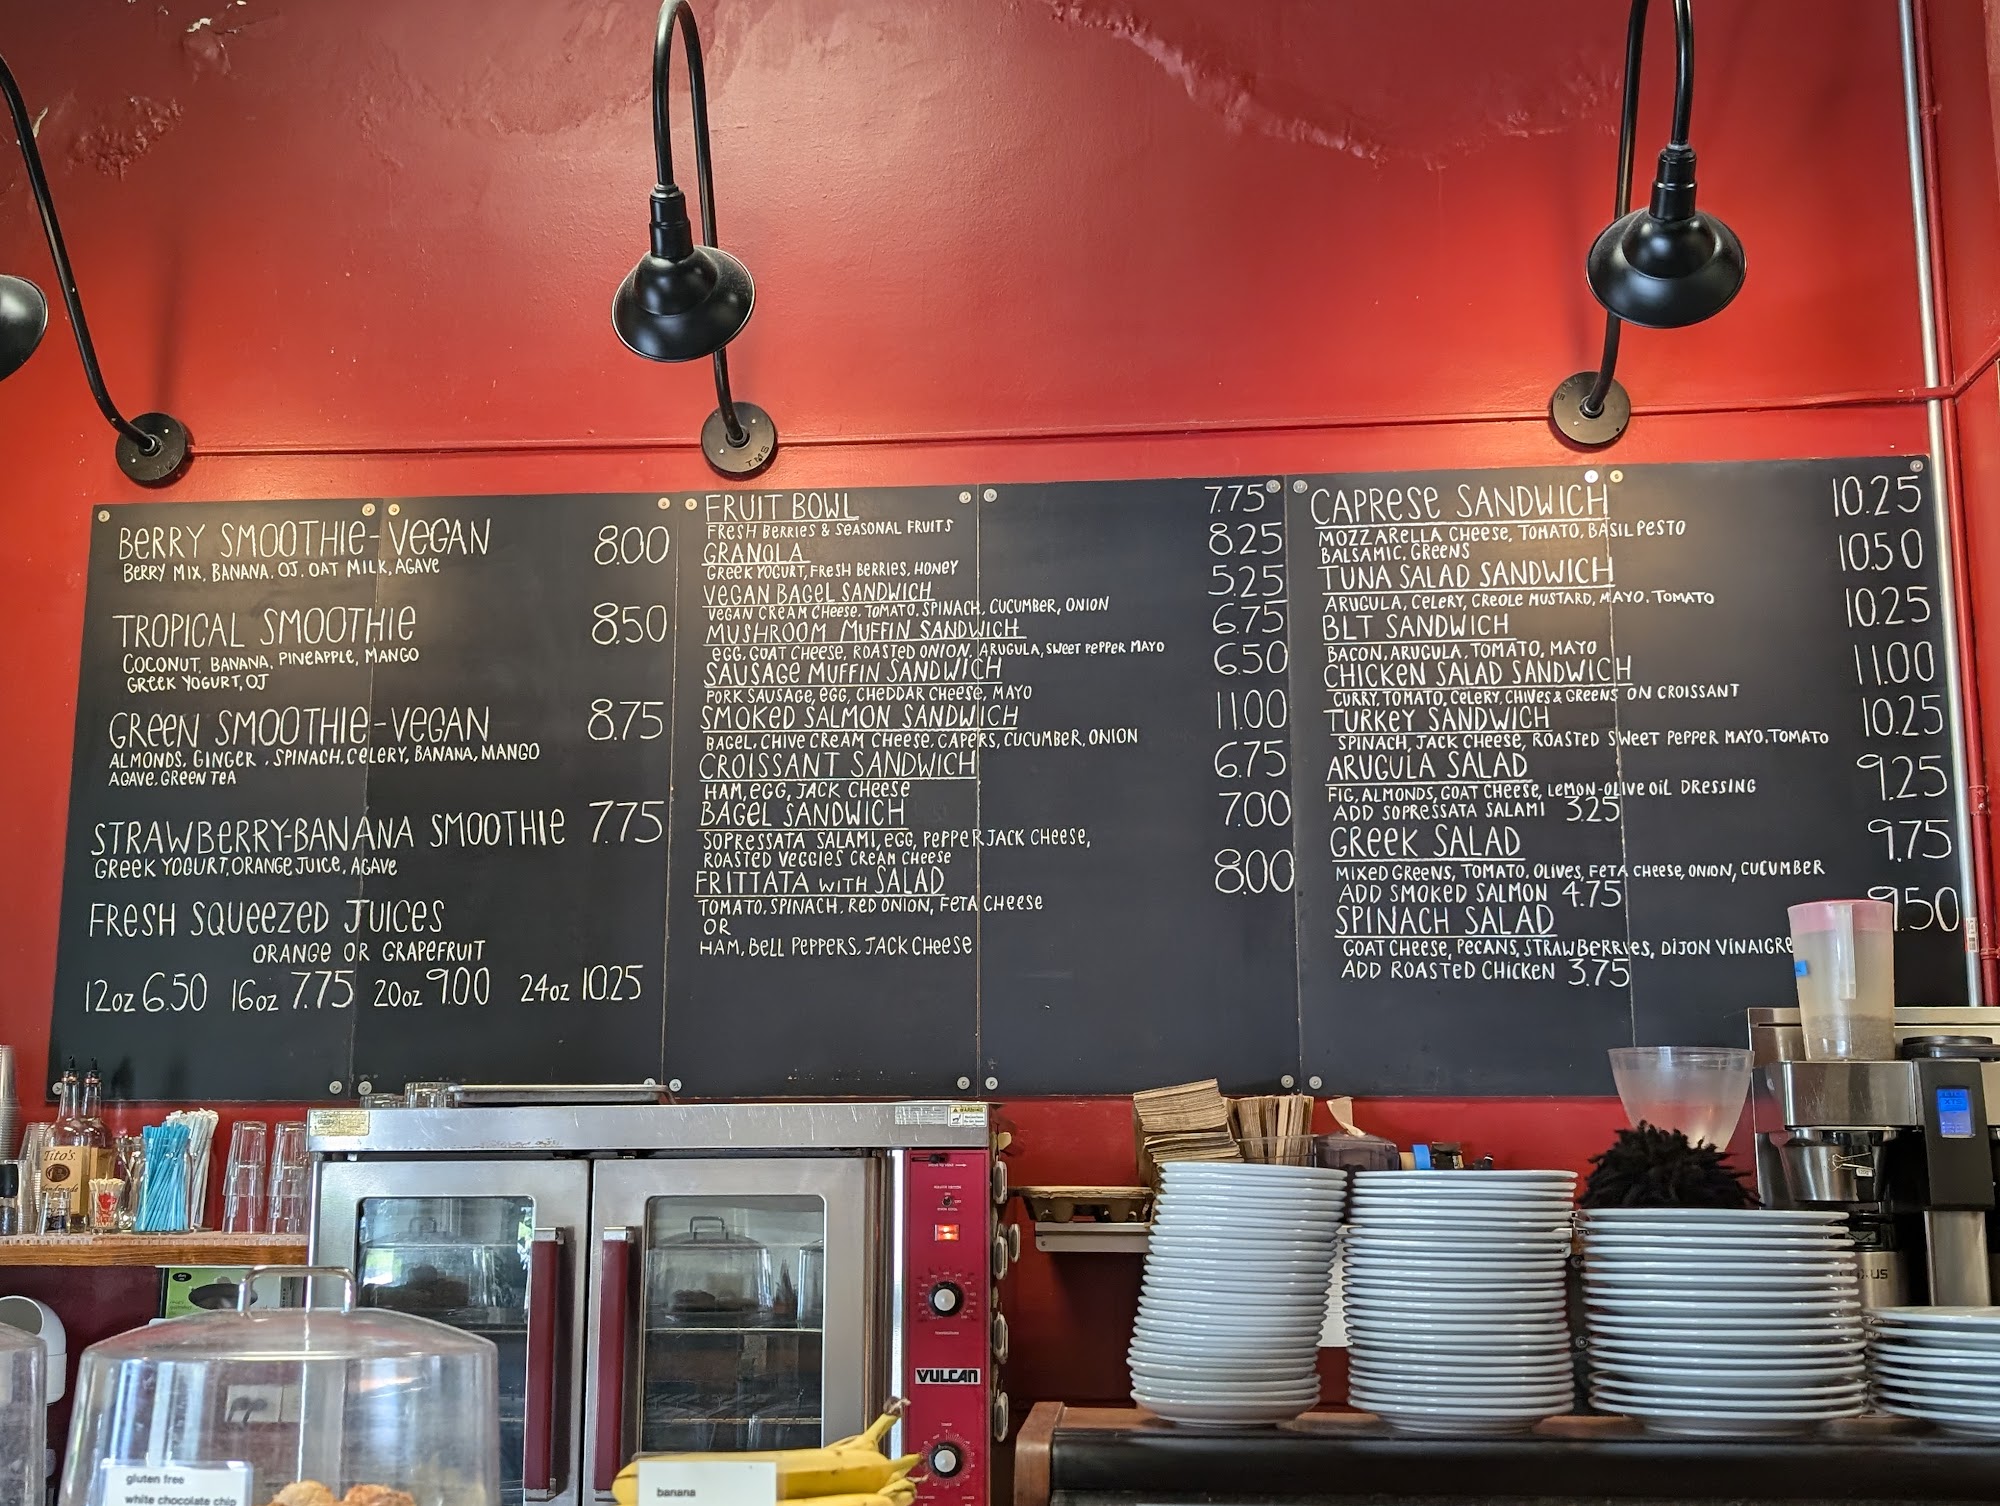 BERRY SMOOTHIE-VEGAN 8.00
BERRY MIX, BANANA, OJ, OAT MILK, AGAVE
TROPICAL SMOOTHIE 8.50
COCONUT, BANANA, PINEAPPLE, MANGO
GREEK YOGURT, OJ
GREEN SMOOTHIE-VEGAN 8.75
ALMONDS, GINGER, SPINACH, CELERY, BANANA, MANGO
AGAVE, GREEN TEA
STRAWBERRY-BANANA SMOOTHIE 7.75
GREEK YOGURT, ORANGE JUICE, AGAVE
FRESH SQUEEZED JUICES
ORANGE OR GRAPEFRUIT
12oz 6.50 16oz 7.75 20oz 9.00 24oz 10.25
FRUIT BOWL 7.75
FRESH BERRIES & SEASONAL FRUITS
GRANOLA 8.25
GREEK YOGURT, FRESH BERRIES, HONEY
VEGAN BAGEL SANDWICH 5.25
VEGAN CREAM CHEESE, TOMATO, SPINACH, CUCUMBER, ONION
MUSHROOM MUFFIN SANDWICH 6.75
EGG, GOAT CHEESE, ROASTED ONION, ARUGULA, SWEET PEPPER MAYO
SAUSAGE MUFFIN SANDWICH 6.50
PORK SAUSAGE, EGG, CHEDDAR CHEESE, MAYO
SMOKED SALMON SANDWICH 11.00
BAGEL, CHIVE CREAM CHEESE, CAPERS, CUCUMBER, ONION
CROISSANT SANDWICH 6.75
HAM, EGG, JACK CHEESE
BAGEL SANDWICH 7.00
SOPRESSATA SALAMI, EGG, PEPPER JACK CHEESE,
ROASTED VEGGIES CREAM CHEESE
FRITTATA WITH SALAD 8.00
TOMATO, SPINACH, RED ONION, FETA CHEESE
OR
HAM, BELL PEPPERS, JACK CHEESE
CAPRESE SANDWICH 10.25
MOZZARELLA CHEESE, TOMATO, BASIL PESTO
BALSAMIC, GREENS
TUNA SALAD SANDWICH 10.50
ARUGULA, CELERY, CREOLE MUSTARD, MAYO, TOMATO
BLT SANDWICH 10.25
BACON, ARUGULA, TOMATO, MAYO
CHICKEN SALAD SANDWICH 11.00
CURRY, TOMATO, CELERY, CHIVES & GREENS ON CROISSANT
TURKEY SANDWICH 10.25
SPINACH, JACK CHEESE, ROASTED SWEET PEPPER MAYO, TOMATO
ARUGULA SALAD 9.25
FIG, ALMONDS, GOAT CHEESE, LEMON-OLIVE OIL DRESSING
ADD SOPRESSATA SALAMI 3.25
GREEK SALAD 9.75
MIXED GREENS, TOMATO, OLIVES, FETA CHEESE, ONION, CUCUMBER
ADD SMOKED SALMON 4.75
SPINACH SALAD 9.50
GOAT CHEESE, PECANS, STRAWBERRIES, DIJON VINAIGRE
ADD ROASTED CHICKEN 3.75
TMS
Tito's
Handmade
WARNING
VULCAN
gluten free
white chocolate chip
banana